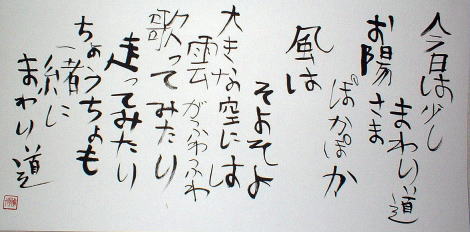 今日は少し
まわり道
お陽さま
ぽかぽか
風は
そよそよ
大きな空には
雲がふわふわ
歌ってみたり
走ってみたり
ちょうちょも
一緒に
まわり道